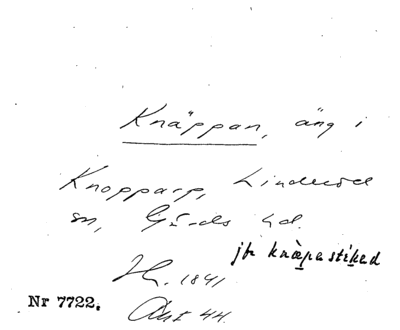 Knäppan, äng i
Knopparp, Linderöd
sn, Gärds hd.
jfr knæpastiked
1841
Nr 7722.
44.